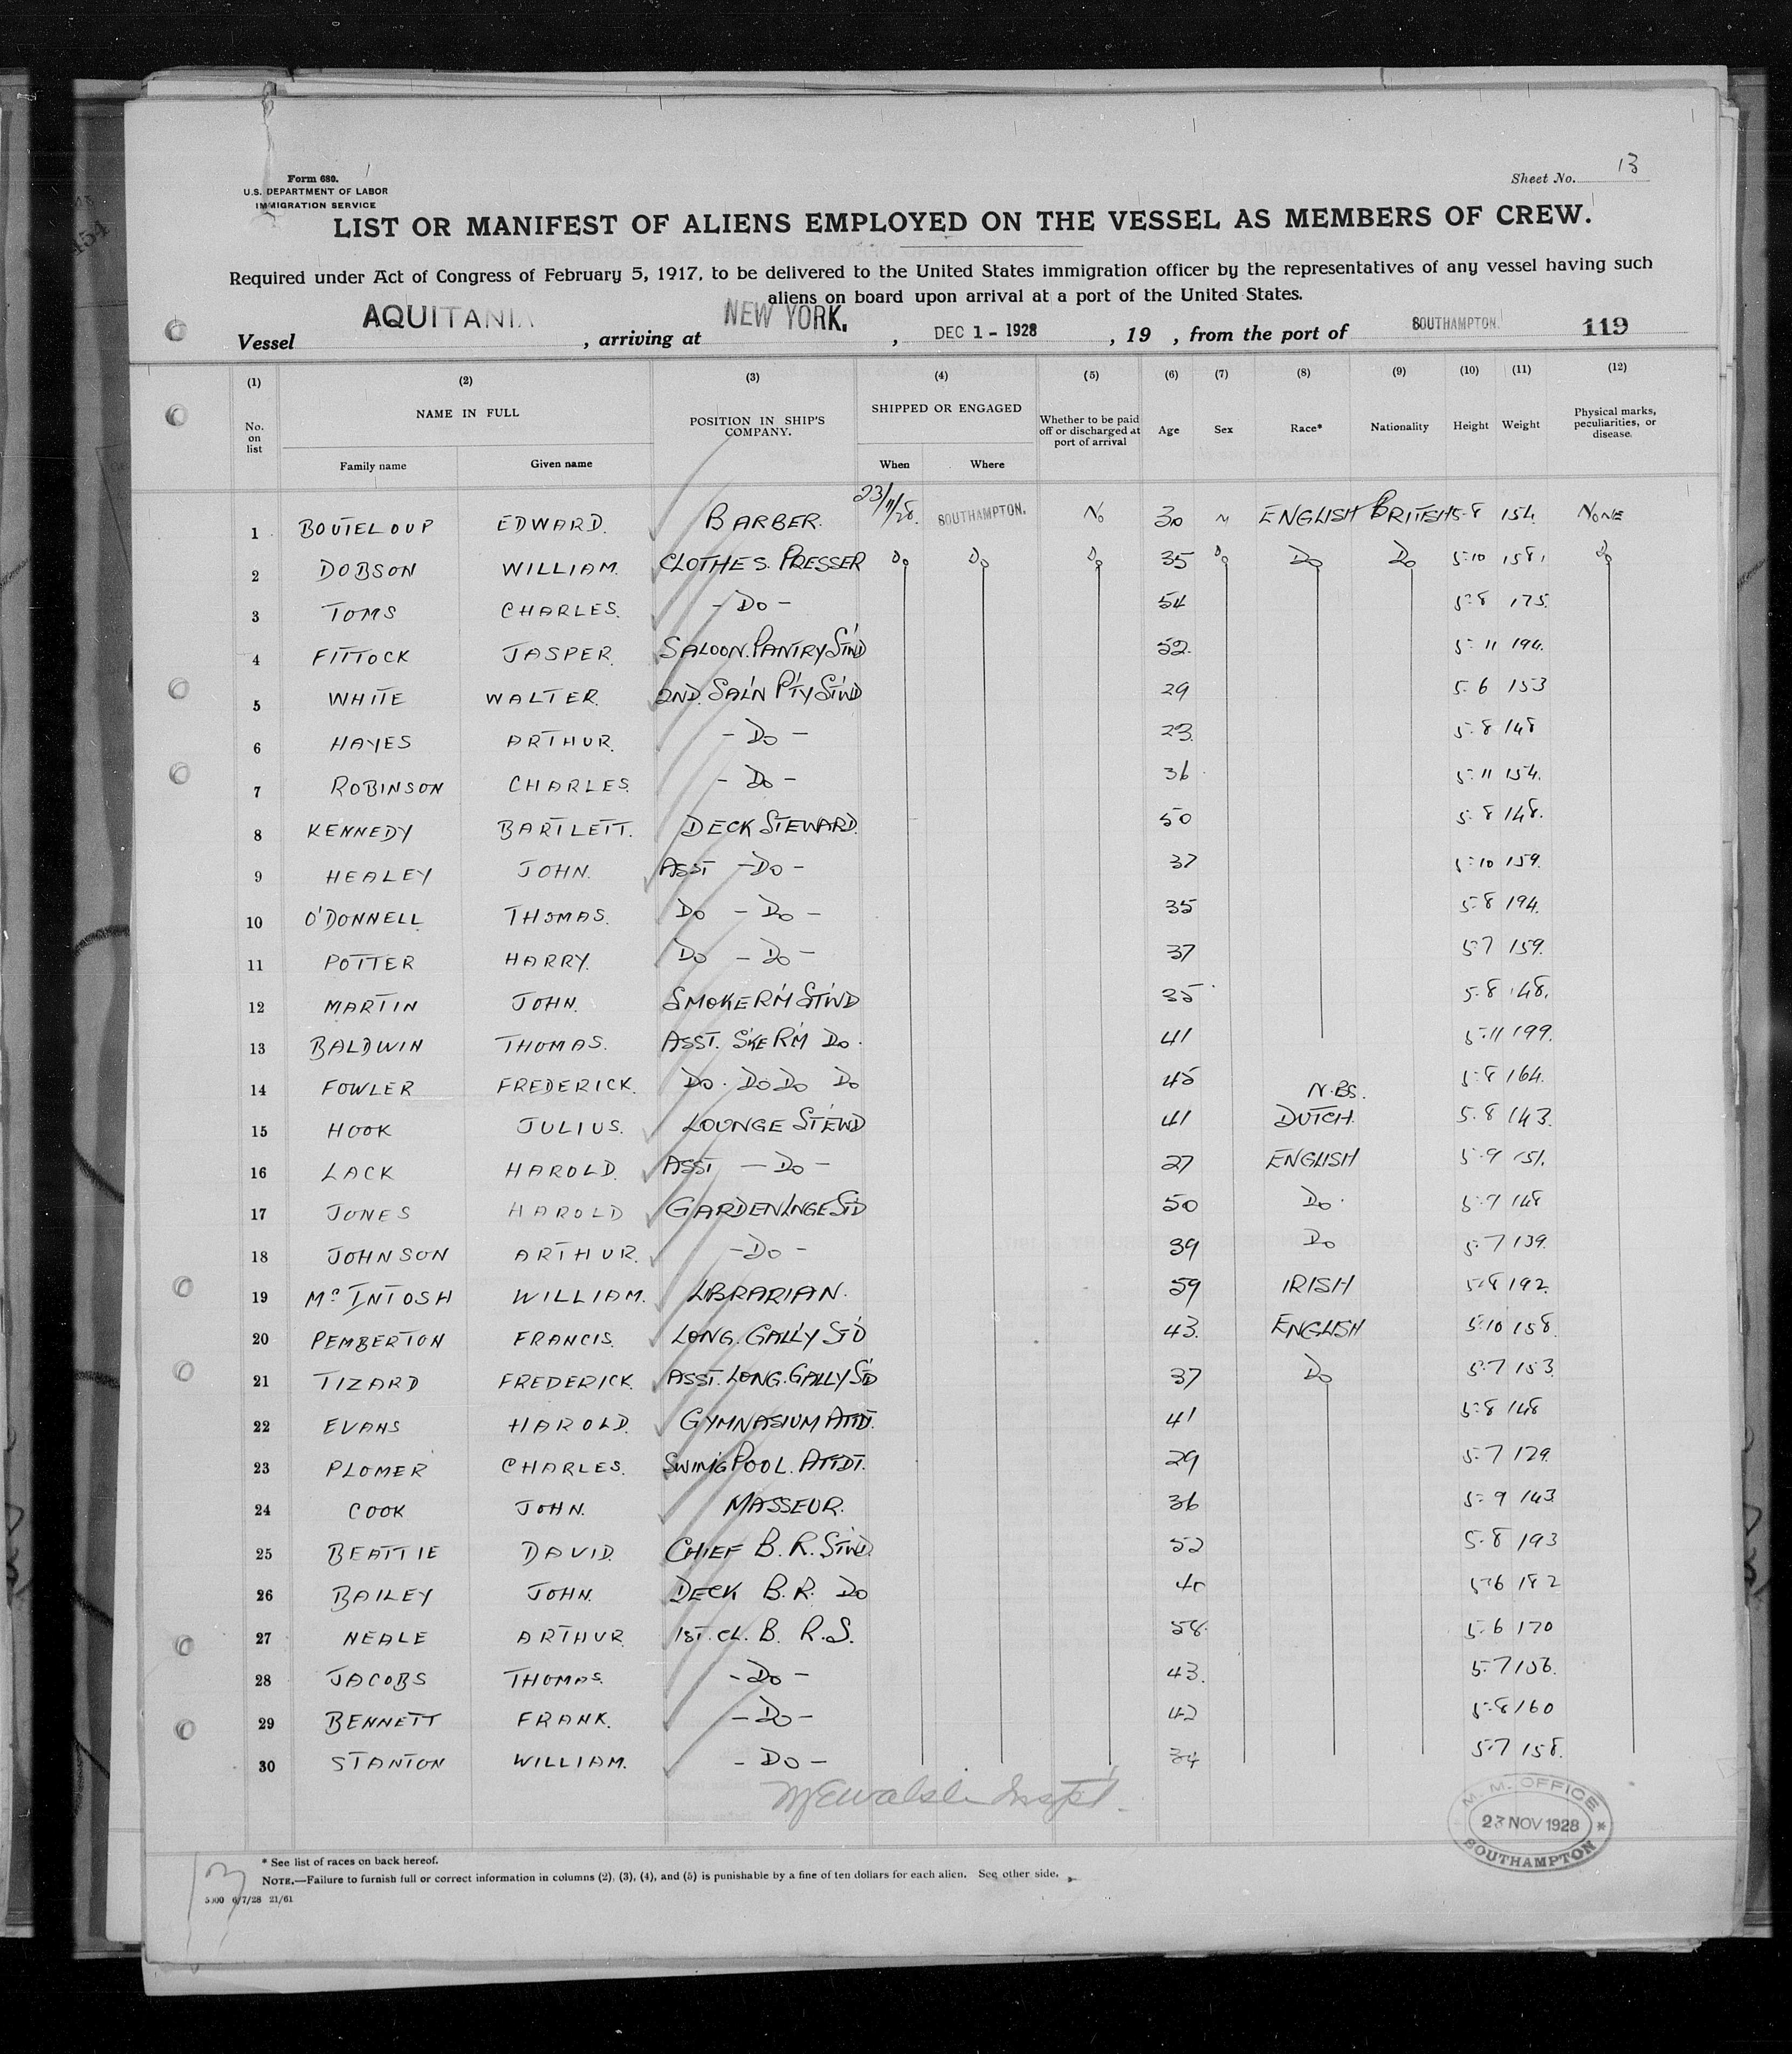 Form 680.
U.S. DEPARTMENT OF LABOR
IMMIGRATION SERVICE
Sheet No. 13
LIST OR MANIFEST OF ALIENS EMPLOYED ON THE VESSEL AS MEMBERS OF CREW.
Required under Act of Congress of February 5, 1917, to be delivered to the United States immigration officer by the representatives of any vessel having such
aliens on board upon arrival at a port of the United States.
Vessel AQUITANIA, arriving at NEW YORK., DEC 1 - 1928, 19 , from the port of SOUTHAMPTON. 119
(1) (2) (3) (4) (5) (6) (7) (8) (9) (10) (11) (12)
No. on list NAME IN FULL POSITION IN SHIP'S COMPANY. SHIPPED OR ENGAGED Whether to be paid off or discharged at port of arrival Age Sex Race* Nationality Height Weight Physical marks, peculiarities, or disease.
Family name Given name When Where
1 BOUTELOUP EDWARD. BARBER. 23/11/28. SOUTHAMPTON. No 30 M ENGLISH BRITISH 5-8 154. NONE
2 DOBSON WILLIAM. CLOTHES. PRESSER Do Do Do 35 Do Do Do 5-10 158. Do
3 TOMS CHARLES. - Do - 54 5-8 175.
4 FITTOCK JASPER. SALOON. PANTRY ST'WD 52. 5-11 194.
5 WHITE WALTER. 2ND. SAL'N P'TY ST'WD 29 5-6 153
6 HAYES ARTHUR. - Do - 23. 5-8 148
7 ROBINSON CHARLES. - Do - 36 5-11 154.
8 KENNEDY BARTLETT. DECK STEWARD. 50 5-8 148.
9 HEALEY JOHN. ASST - Do - 37 5-10 159.
10 O'DONNELL THOMAS. Do - Do - 35 5-8 194.
11 POTTER HARRY. Do - Do - 37 5-7 159.
12 MARTIN JOHN. SMOKE R'M ST'WD 35 5-8 148.
13 BALDWIN THOMAS. ASST. S'KE R'M Do. 41 5-11 199.
14 FOWLER FREDERICK. Do. Do Do Do 45 5-8 164.
15 HOOK JULIUS. LOUNGE ST'EWD 41 N.BS. DUTCH. 5-8 143.
16 LACK HAROLD. ASST - Do - 27 ENGLISH 5-9 151.
17 JONES HAROLD GARDEN LNGE ST'D 50 Do. 5-9 148
18 JOHNSON ARTHUR. - Do - 39 Do 5-7 139.
19 McINTOSH WILLIAM. LIBRARIAN. 59 IRISH 5-8 192.
20 PEMBERTON FRANCIS. LONG. GAL'Y ST'D 43. ENGLISH 5-10 158.
21 TIZARD FREDERICK. ASST. LONG. GALLY ST'D 37 Do 5-7 153.
22 EVANS HAROLD. GYMNASIUM ATTDT. 41 5-8 148
23 PLOMER CHARLES. SWIM'G POOL. ATTDT. 29 5-7 129.
24 COOK JOHN. MASSEUR. 36 5-9 143
25 BEATTIE DAVID. CHIEF B. R. ST'WD. 52 5-8 193
26 BAILEY JOHN. DECK B. R. Do 40 5-6 182
27 NEALE ARTHUR 1ST. CL. B. R. S. 58. 5-6 170
28 JACOBS THOMAS. - Do - 43. 5-7 156.
29 BENNETT FRANK. - Do - 42 5-8 160
30 STANTON WILLIAM. - Do - 34 5-7 158.
M. M. OFFICE
23 NOV 1928 *
SOUTHAMPTON
* See list of races on back hereof.
NOTE.—Failure to furnish full or correct information in columns (2), (3), (4), and (5) is punishable by a fine of ten dollars for each alien. See other side.
5000 6/7/28 21/61
13